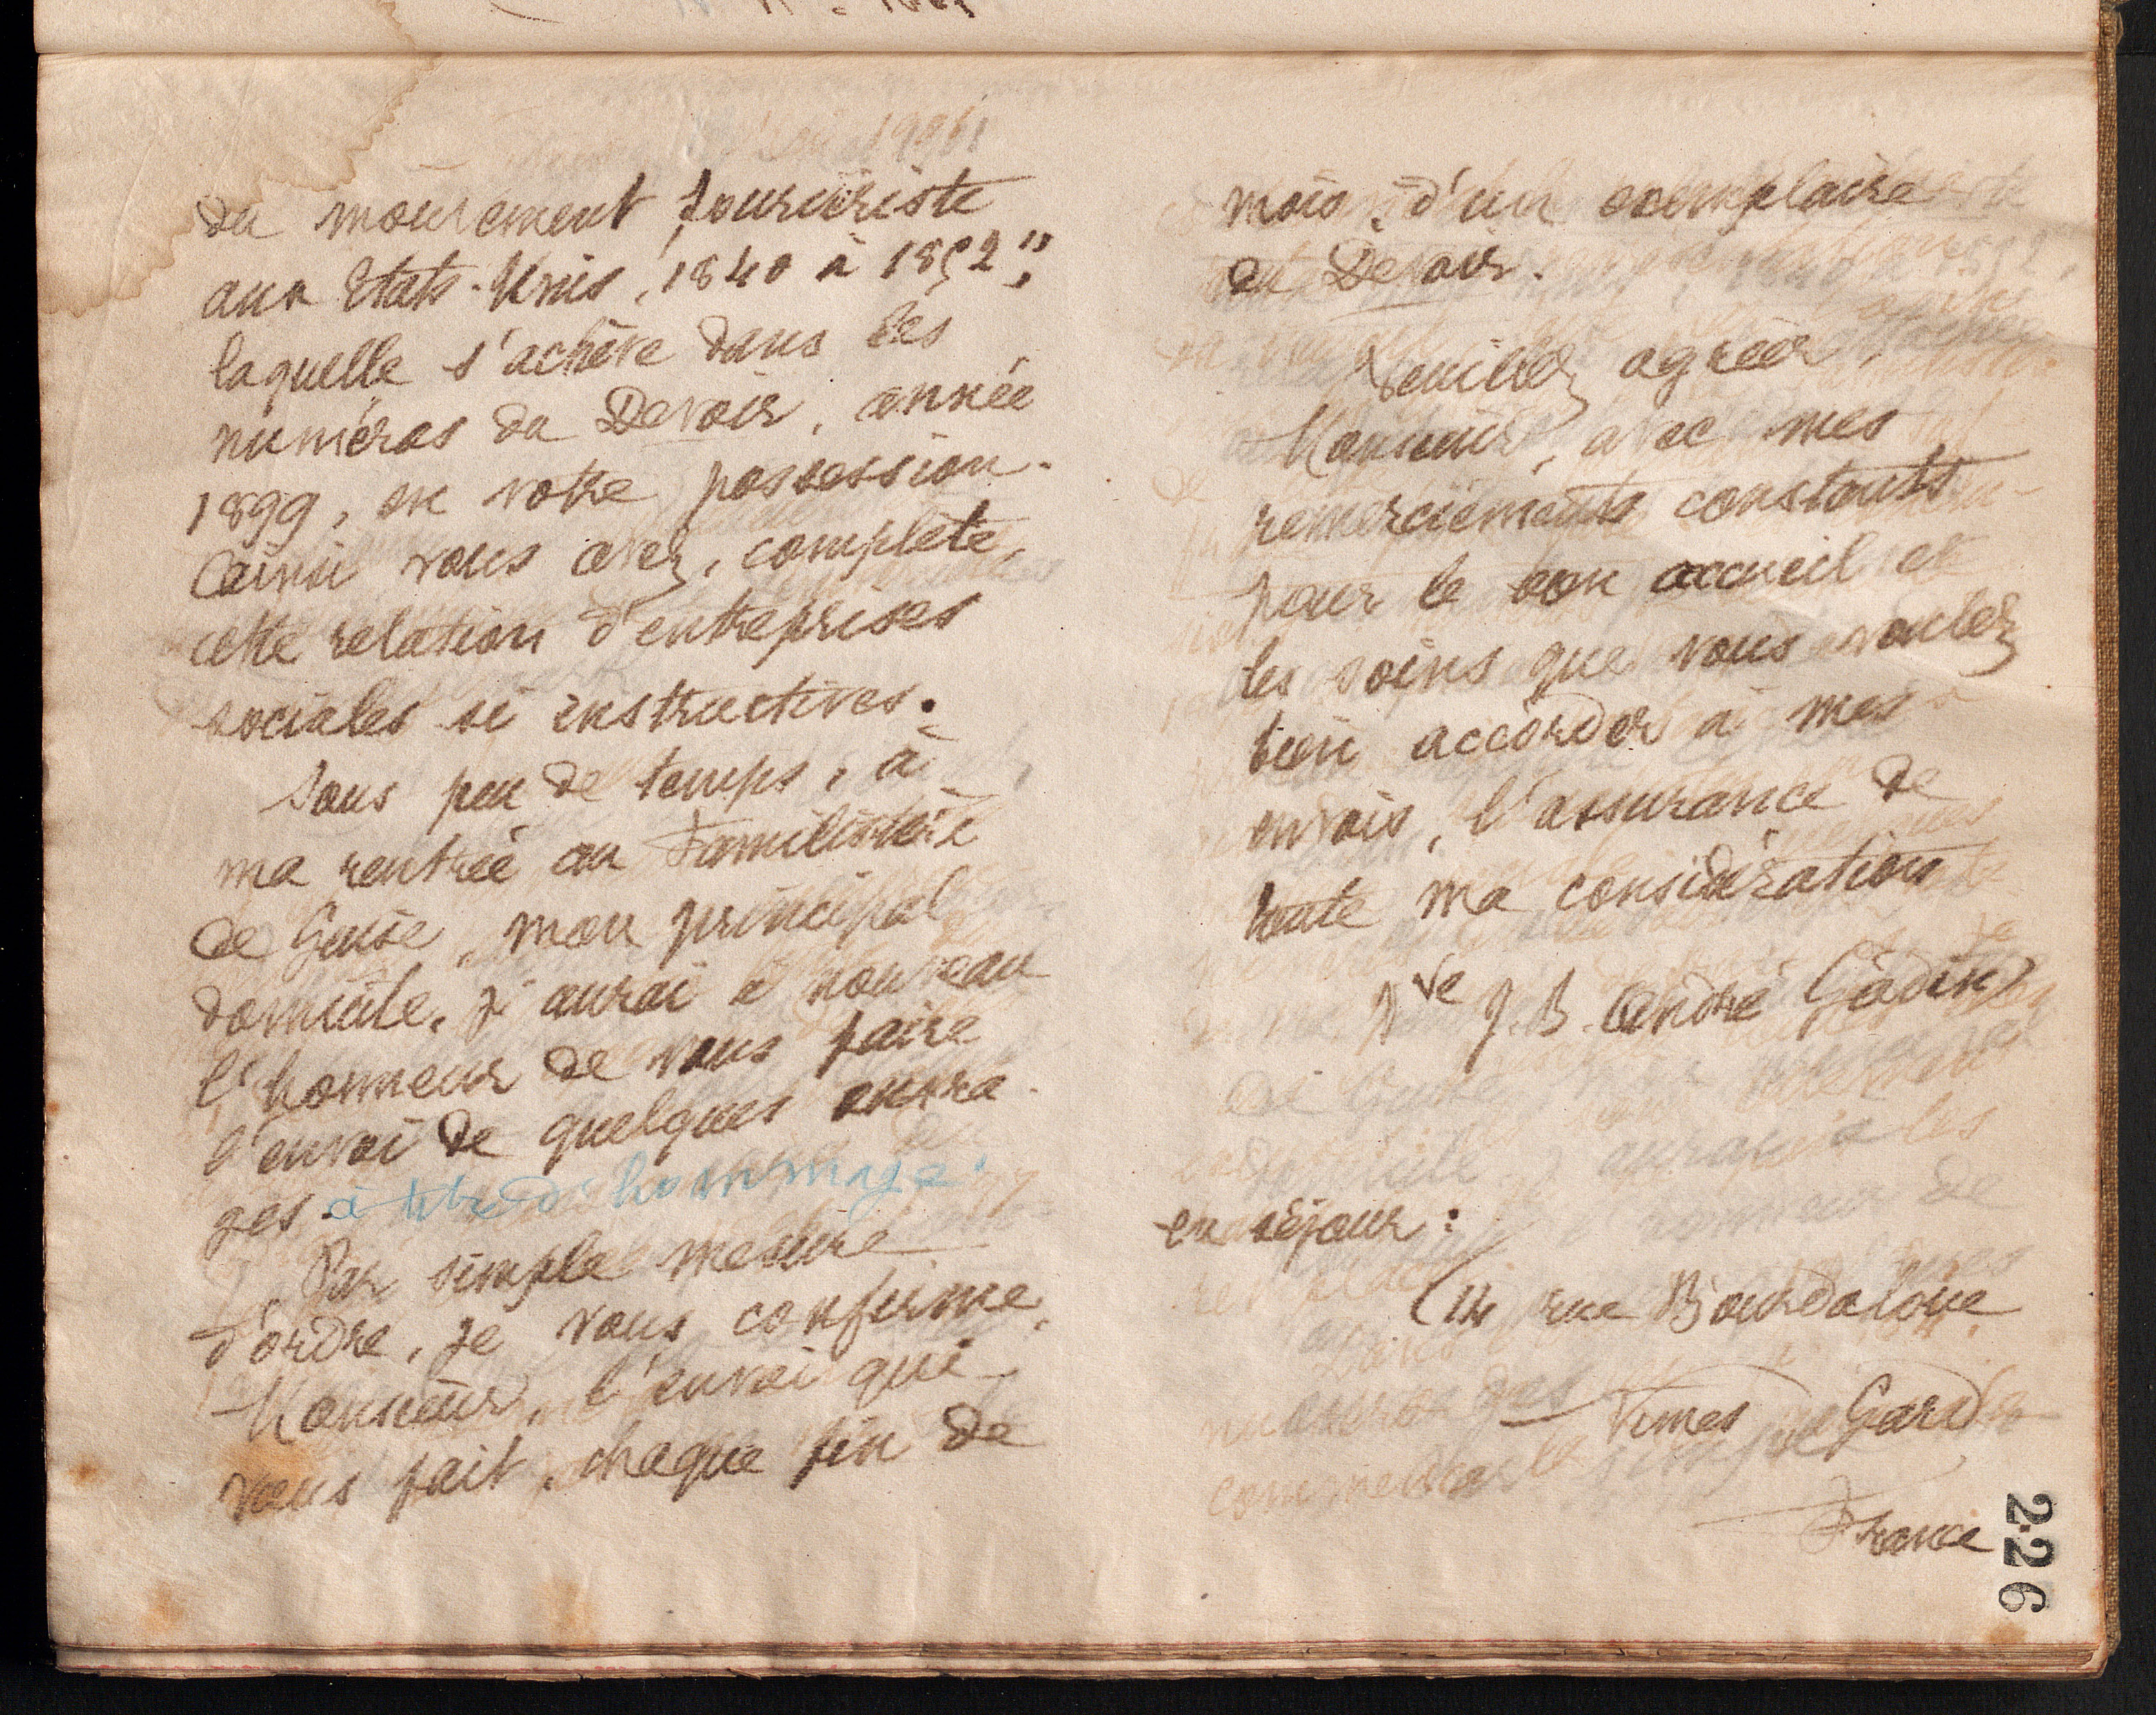 du mouvement fouriériste
aux Etats-Unis, 1840 à 1852",
laquelle s'achève dans les
numéros du Devoir, année
1899, en votre possession.
Ainsi vous avez, complète,
cette relation d'entreprises
sociales si instructives.
Sous peu de temps, à
ma rentrée au Familistère
de Guise, mon principal
domicile, j'aurai à nouveau
l'honneur de vous faire
l'envoi de quelques ouvra-
ges. à titre d'hommage.
Par simple mesure
d'ordre, je vous confirme,
Monsieur, l'envoi qui
vous fait, chaque fin de
mois, d'un exemplaire
du Devoir.
Veuillez agréer,
Monsieur, avec mes
remerciements constants
pour le bon accueil et
les soins que vous voulez
bien accorder à mes
envois, l'assurance de
toute ma considération
Vve J.B. André Godin
en séjour :
14 rue Bourdaloue
Nimes Gard
France
226